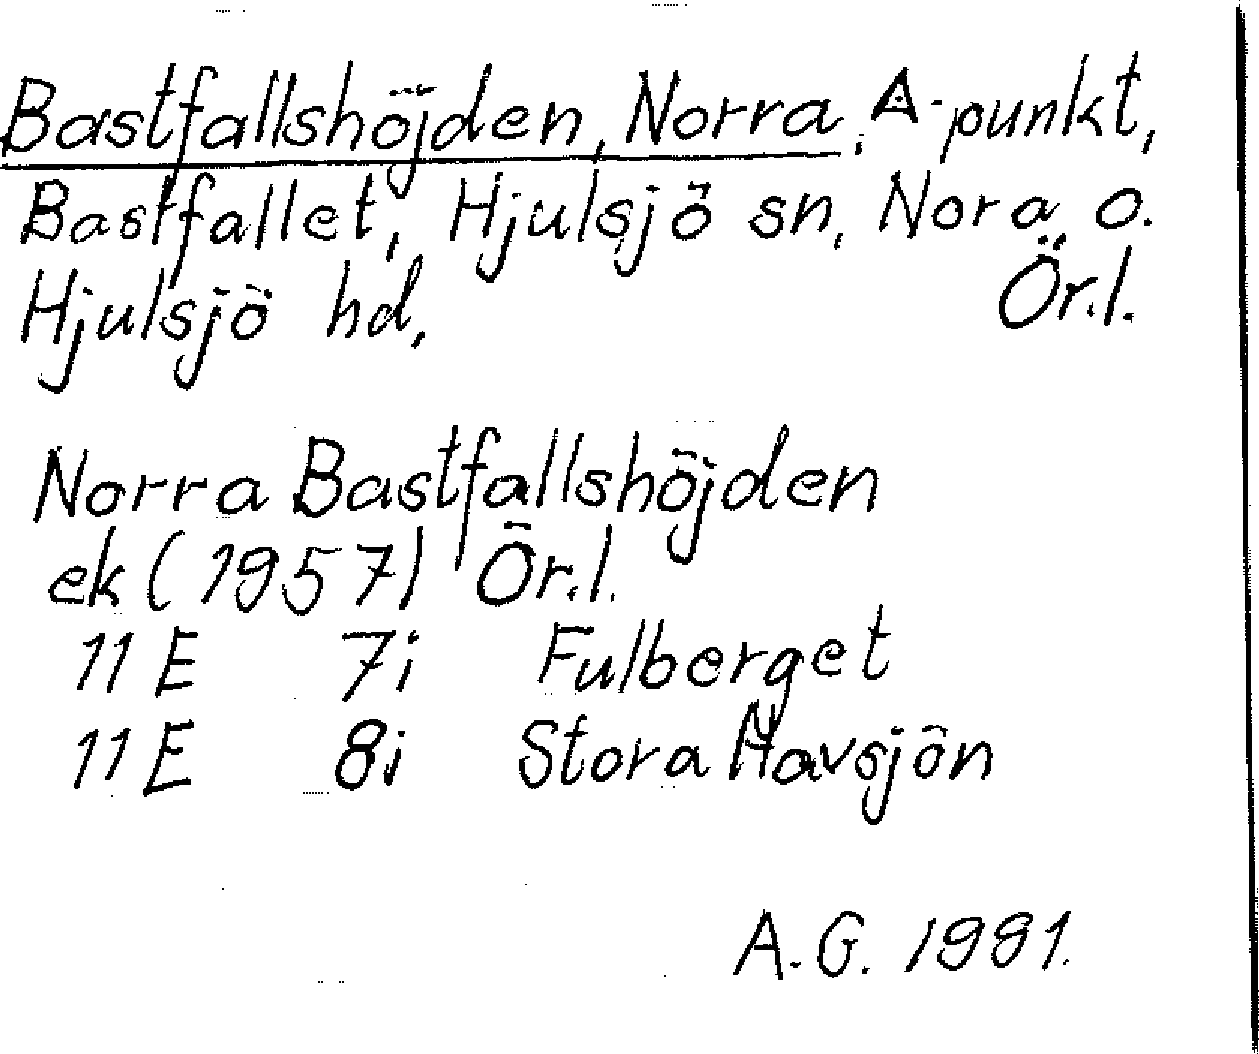 Bastfallshöjden, Norra, A-punkt,
Bastfallet, Hjulsjö sn, Nora o.
Hjulsjö hd, Ör.l.
Norra Bastfallshöjden
ek (1957) Ör.l.
11 E 7i Fulberget
11 E 8i Stora Havsjön
A.G. 1981.